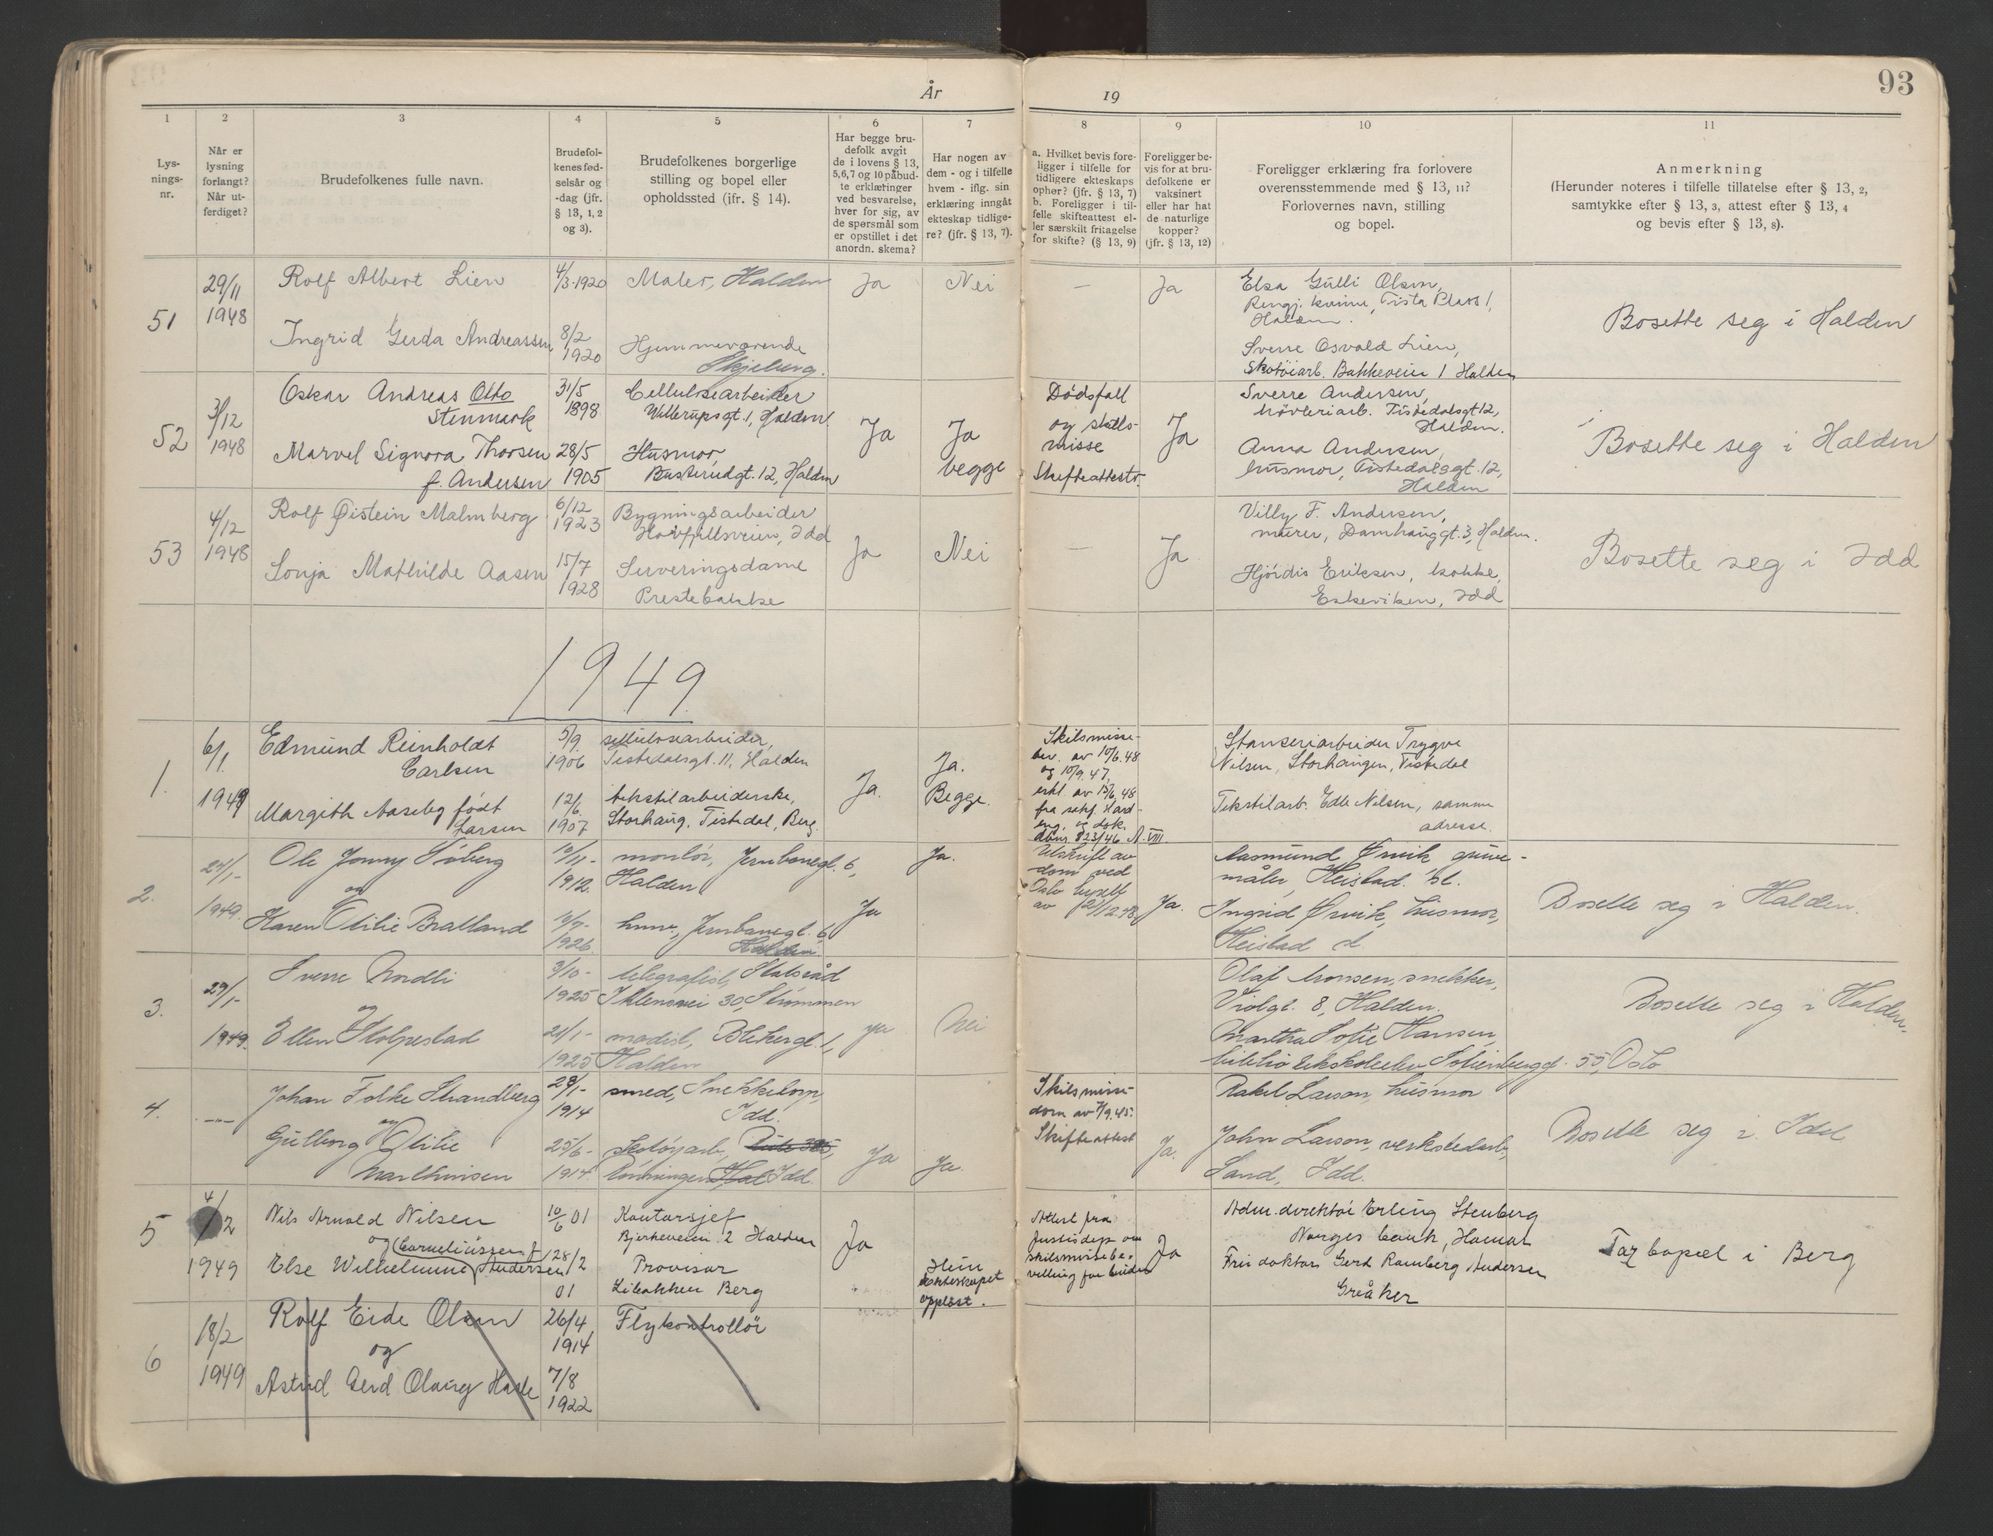 År 19
93
1 2 3 4 5 6 7 8 9 10 11
Lys-
nings-
nr.
Når er
lysning
forlangt?
Når ut-
ferdiget?
Brudefolkenes fulle navn.
Brudefol-
kenes fød-
selsår og
-dag (jfr.
§ 13, 1, 2
og 3).
Brudefolkenes borgerlige
stilling og bopel eller
opholdssted (jfr. § 14).
Har begge bru-
defolk avgit
de i lovens § 13,
5, 6, 7 og 10 påbud-
te erklæringer
ved besvarelse,
hver for sig, av
de spørsmål som
er opstillet i det
anordn. skema?
Har nogen av
dem - og i tilfelle
hvem - iflg. sin
erklæring inngåt
ekteskap tidlige-
re? (jfr. § 13, 7).
a. Hvilket bevis fore-
ligger i tilfelle for
tidligere ekteskaps
ophør? (jfr. § 13, 7)
b. Foreligger i til-
felle skifteattest el-
ler særskilt fritagelse
for skifte? (§ 13, 9)
Foreligger be-
vis for at bru-
defolkene er
vaksinert
eller har hat
de naturlige
kopper?
(jfr. § 13, 12)
Foreligger erklæring fra forlovere
overensstemmende med § 13, 11?
Forlovernes navn, stilling
og bopel.
Anmerkning
(Herunder noteres i tilfelle tillatelse efter § 13, 2,
samtykke efter § 13, 3, attest efter § 13, 4
og bevis efter § 13, 8).
51
29/11
1948
Rolf Albert Lien
4/3-1920
Maler, Halden
Ja
Nei
—
Ja
Elsa Gulli Olsen,
Rengj. kvinne, Tista Plass 1,
Halden.
Bosette seg i Halden
Ingrid Gerda Andreassen
8/2
1920
Hjemmeværende
Skjeberg.
Sverre Osvald Lien,
Skotøiarb. Bakkeveien 1 Halden
52
3/12
1948
Oskar Andreas Otto
Stenmark
31/5
1898
Cellulosearbeider
Willerupsgt. 1, Halden
Ja
Ja
begge
Dødsfall
og skils-
misse
Skifteattestr.
Ja
Sverre Andersen,
høvleriarb. Tistedalsgt 12,
Halden.
Bosette seg i Halden
Marvel Signora Thorsen
f. Andersen
28/5
1905
Husmor,
Busterudgt. 12, Halden
Anna Andersen,
husmor, Tistedalsgt. 12,
Halden
53
4/12
1948
Rolf Øistein Malmberg
6/12
1923
Bygningsarbeider
Idd
Ja
Nei
—
Ja
Villy F. Andersen,
murer, Damhauggt. 3, Halden.
Bosette seg i Idd
Sonja Mathilde Aasen
15/7
1928
Serveringsdame
Prestebakke
Hjørdis Eriksen, kokke,
Eskeviken, Idd
1949
1.
6/1
1949
Edmund Reinholdt
Carlsen
5/9.
1906
cellulosearbeider,
Tistedalsgt. 11, Halden
Ja.
Ja.
Begge.
Skilsmisse-
bev. av 10/6.48
og 10/9.47,
erkl. av 15/6.48
fra sakf. Hard-
eng, og dok.
823/46 A. VIII
Stanseriarbeider Trygve
Nilsen, Storhaugen, Tistedal
Margith Aaseby født
Larsen
12/6.
1907
tekstilarbeiderske,
Storhaug, Tistedal, Berg.
Tekstilarb. Edle Nilsen, samme
adresse.
2.
24/1-
1949.
Ole Jonny Søberg
og
10/11-
1912.
montør, Jernbanegt. 6,
Halden
Ja
Ja.
Utskrift av
dom ved
Oslo byrett
av 21/12.48.
Ja.
Aasmund Ørvik gruve-
måler, Heistad.
Ingrid Ørvik, husmor,
Heistad
Bosette seg i Halden.
Karen Otilie Bratland
10/9-
1926
Jernbanegt. 6
Halden.
3.
29/1-
1949.
Sverre Nordli
og
3/10-
1925
telegrafist, Statsråd
Ihlensvei 30, Strømmen
Ja
Nei
Olaf Monsen, snekker,
Violgt. 8, Halden.
Martha Sofie Hansen,
Sofienberggt. 55, Oslo
Bosette seg i Halden.
Ellen Stolpestad
21/1-
1925
modist, Blekergt. 1,
Halden
4.
—"—
Johan Folke Strandberg
og
28/1-
1914
smed, Snekkitorp,
Idd.
Ja
Ja.
Skilsmisse-
dom av 7/9.45.
Skifteattest
Ja.
Rakel Larson, husmor
John Larson, verkstedarb,
Sand, Idd.
Bosette seg i Idd
Gulborg Otilie
Marthinsen
25/6-
1914.
skotøyarb,
Idd.
5
4/2
1949
Nils Arnold Nilsen
og
10/6 01
Kontorsjef
Bjerkeveien 2 Halden
Ja
Hun
ekteskapet
oppløst.
Attest fra
Justisdep om
skilsmissebe-
villing for bruden
Ja
Adm. direktør Erling Stenberg
Norges bank, Hamar
Fru doktor Gerd Ramberg Andersen
Gråker
Tar bopæl i Berg
Else Wilhelmine Andersen
(Corneliussen f
28/2
01
Provisor
Libakken Berg
6
18/2
1949
Rolf Eide Olsen
og
26/4
1914
Flykontrollør
Astrid Gerd Olaug Hasle
7/8
1922